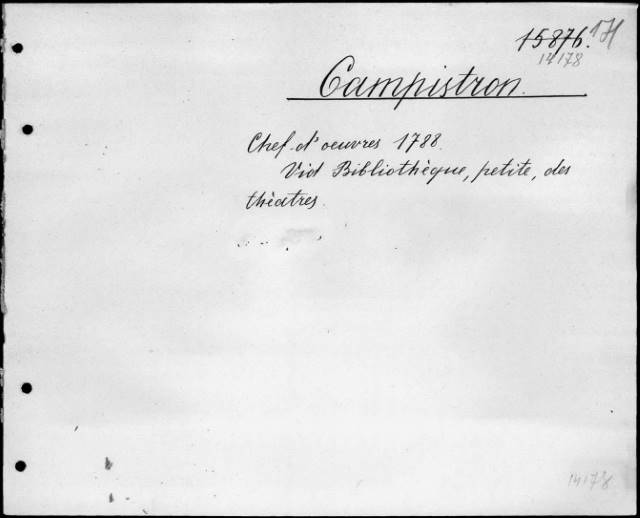 15876. 171
14178
Campistron.
Chef-d'oeuvres 1788.
Vid Bibliothèque, petite, des
théatres.
14178